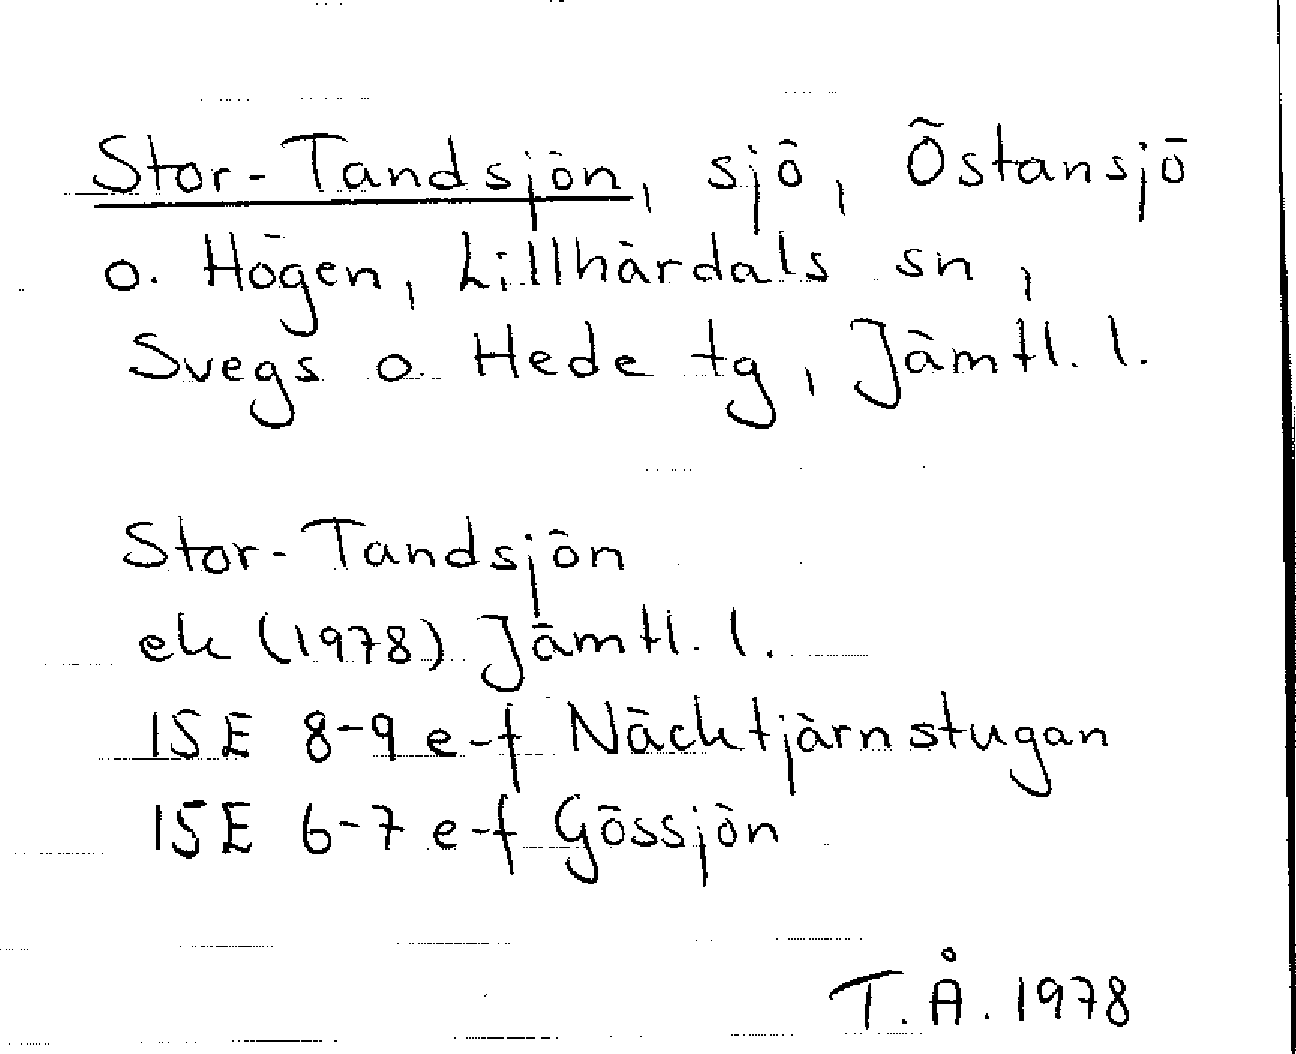 Stor-Tandsjön, sjö, Östansjö
o. Högen, Lillhärdals sn,
Svegs o. Hede tg, Jämtl. l.
Stor-Tandsjön
ek (1978) Jämtl. l.
15E 8-9 e-f Näcktjärnstugan
15E 6-7 e-f Gössjön
T.Å. 1978